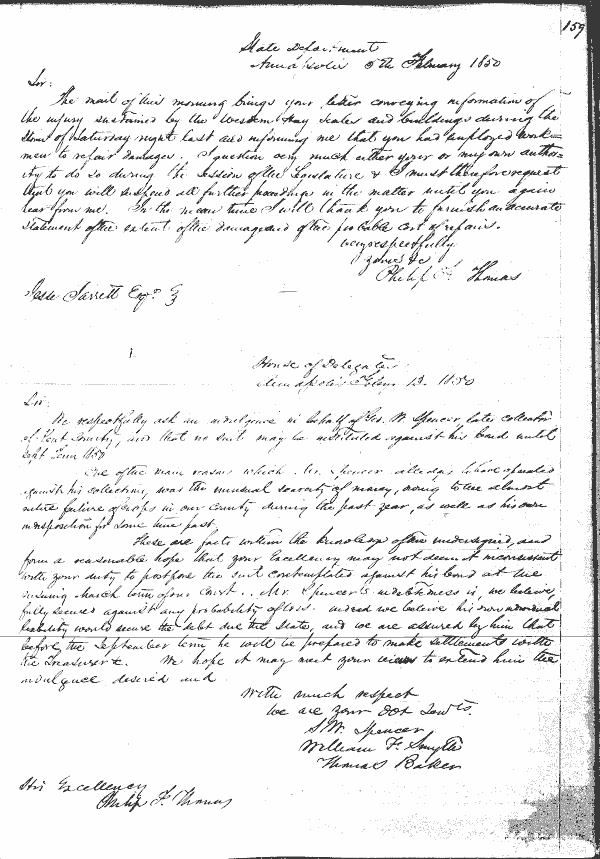 159
State Department
Annapolis 5th February 1850
Sir:
The mail of this morning brings your letter conveying information of
the injury sustained by the Western Hay Scales and buildings during the
storm of Saturday night last and informing me that you had employed work=
men to repair damages. I question very much either your or my own author=
ity to do so during the session of the Legislature & I must therefore request
that you will suspend all further proceedings in the matter until you again
hear from me. In the mean time I will thank you to furnish an accurate
statement of the extent of the damage and of the probable cost of repairs.
very respectfully
yours &c
Philip F. Thomas
Jesse Jarrett Esqr
House of Delegates
Annapolis Feby 13. 1850
Sir
We respectfully ask an indulgence in behalf of Geo. W. Spencer late collector
of Kent County, and that no suit may be instituted against his bond until
Sept Term 1850
One of the main reasons which Mr. Spencer alledges to have operated
against his collections, was the unusual scarcity of money, owing to the almost
entire failure of crops in our county during the past year, as well as his own
indisposition for some time past,
These are facts within the knowledge of the undersigned, and
form a reasonable hope that your Excellency may not deem it inconsistent
with your duty to postpone the suit contemplated against his bond at the
ensuing March term of our Court. Mr. Spencer's indebtedness is, we believe,
fully secured against any probability of loss. indeed we believe his own individual
liability would secure the debt due the State, and we are assured by him that
before the September term he will be prepared to make settlements with
the Treasurer &. We hope it may meet your views to extend him the
indulgence desired and
With much respect
We are your Obt Servts.
S. W. Spencer
William F. Smyth
Thomas Baker
His Excellency
Philip F. Thomas